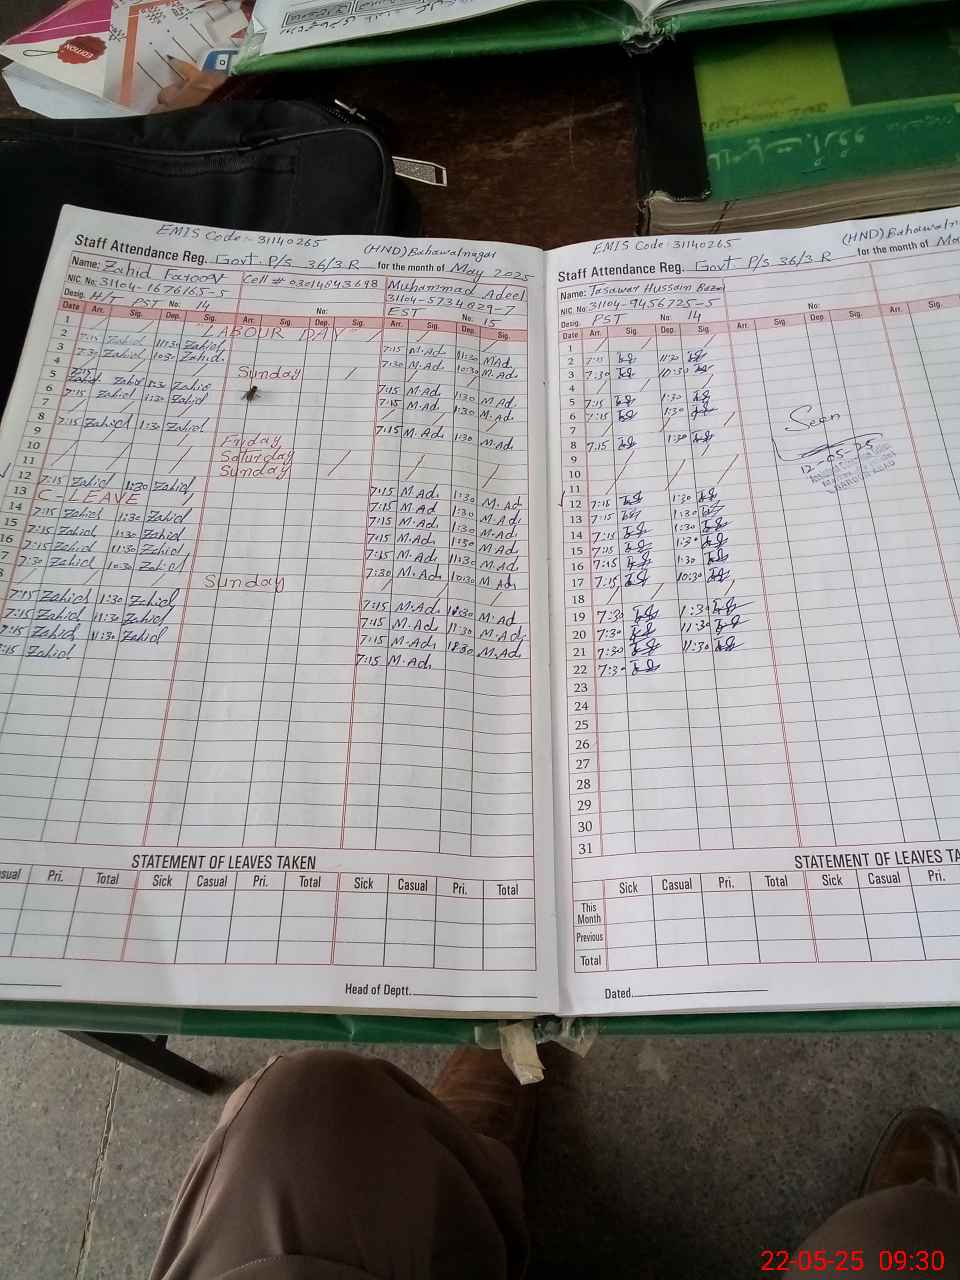 EDITION
EMIS Code:- 31140265
(HND) Bahawalnagar
Staff Attendance Reg. Govt. P/S 36/3 R for the month of May 2025
Name: Zahid Farooq Cell # 03014843698 Muhammad Adeel
NIC. No: 31104-1676165-5 31104-5734029-7
Desig. H/T PST No: 14 No: EST No: 15
Date Arr. Sig. Dep. Sig. Arr. Sig. Dep. Sig. Arr. Sig. Dep. Sig.
1 LABOUR DAY
2 7:15 Zahid 11:30 Zahid 7:15 M.Ad 11:30 M.Ad
3 7:30 Zahid 10:30 Zahid 7:30 M.Ad 10:30 M.Ad
4 Sunday
5 7:15 Zahid 1:30 Zahid 7:15 M.Ad 1:30 M.Ad
6 7:15 Zahid 1:30 Zahid 7:15 M.Ad 1:30 M.Ad
7
8 7:15 Zahid 1:30 Zahid 7:15 M.Ad 1:30 M.Ad
9 Friday
10 Saturday
11 Sunday
12 7:15 Zahid 11:30 Zahid 7:15 M.Ad 1:30 M.Ad
13 C-LEAVE 7:15 M.Ad 1:30 M.Ad
14 7:15 Zahid 1:30 Zahid 7:15 M.Ad 1:30 M.Ad
15 7:15 Zahid 11:30 Zahid 7:15 M.Ad 1:30 M.Ad
16 7:15 Zahid 11:30 Zahid 7:15 M.Ad 11:30 M.Ad
7 7:30 Zahid 10:30 Zahid 7:30 M.Ad 10:30 M.Ad
8 Sunday
7:15 Zahid 1:30 Zahid 7:15 M.Ad M.Ad
7:15 Zahid 11:30 Zahid 7:15 M.Ad 11:30 M.Ad
7:15 Zahid 11:30 Zahid 7:15 M.Ad M.Ad
7:15 Zahid 7:15 M.Ad
STATEMENT OF LEAVES TAKEN
sual Pri. Total Sick Casual Pri. Total Sick Casual Pri. Total
Head of Deptt.
EMIS Code: 31140265
(HND) Bahawalna
Staff Attendance Reg. Govt. P/S 36/3 R for the month of Ma
Name: Tasawar Hussain
NIC. No: 31104-9456725-5
Desig. PST No: 14 No:
Date Arr. Sig. Dep. Sig. Arr. Sig. Dep. Sig. Arr. Sig.
1
2 7:15 11:30
3 7:30 10:30
4
5 7:15 1:30
6 7:15 1:30
7
8 7:15 1:30
9
10
11
12 7:15 1:30
13 7:15 1:30
14 7:15 1:30
15 7:15 1:30
16 7:15 1:30
17 7:15 10:30
18
19 7:30 1:30
20 7:30 11:30
21 7:30 11:30
22 7:30
23
24
25
26
27
28
29
30
31
Seen
12-05-25
STATEMENT OF LEAVES TA
Sick Casual Pri. Total Sick Casual Pri.
This Month
Previous
Total
Dated.
22-05-25 09:30